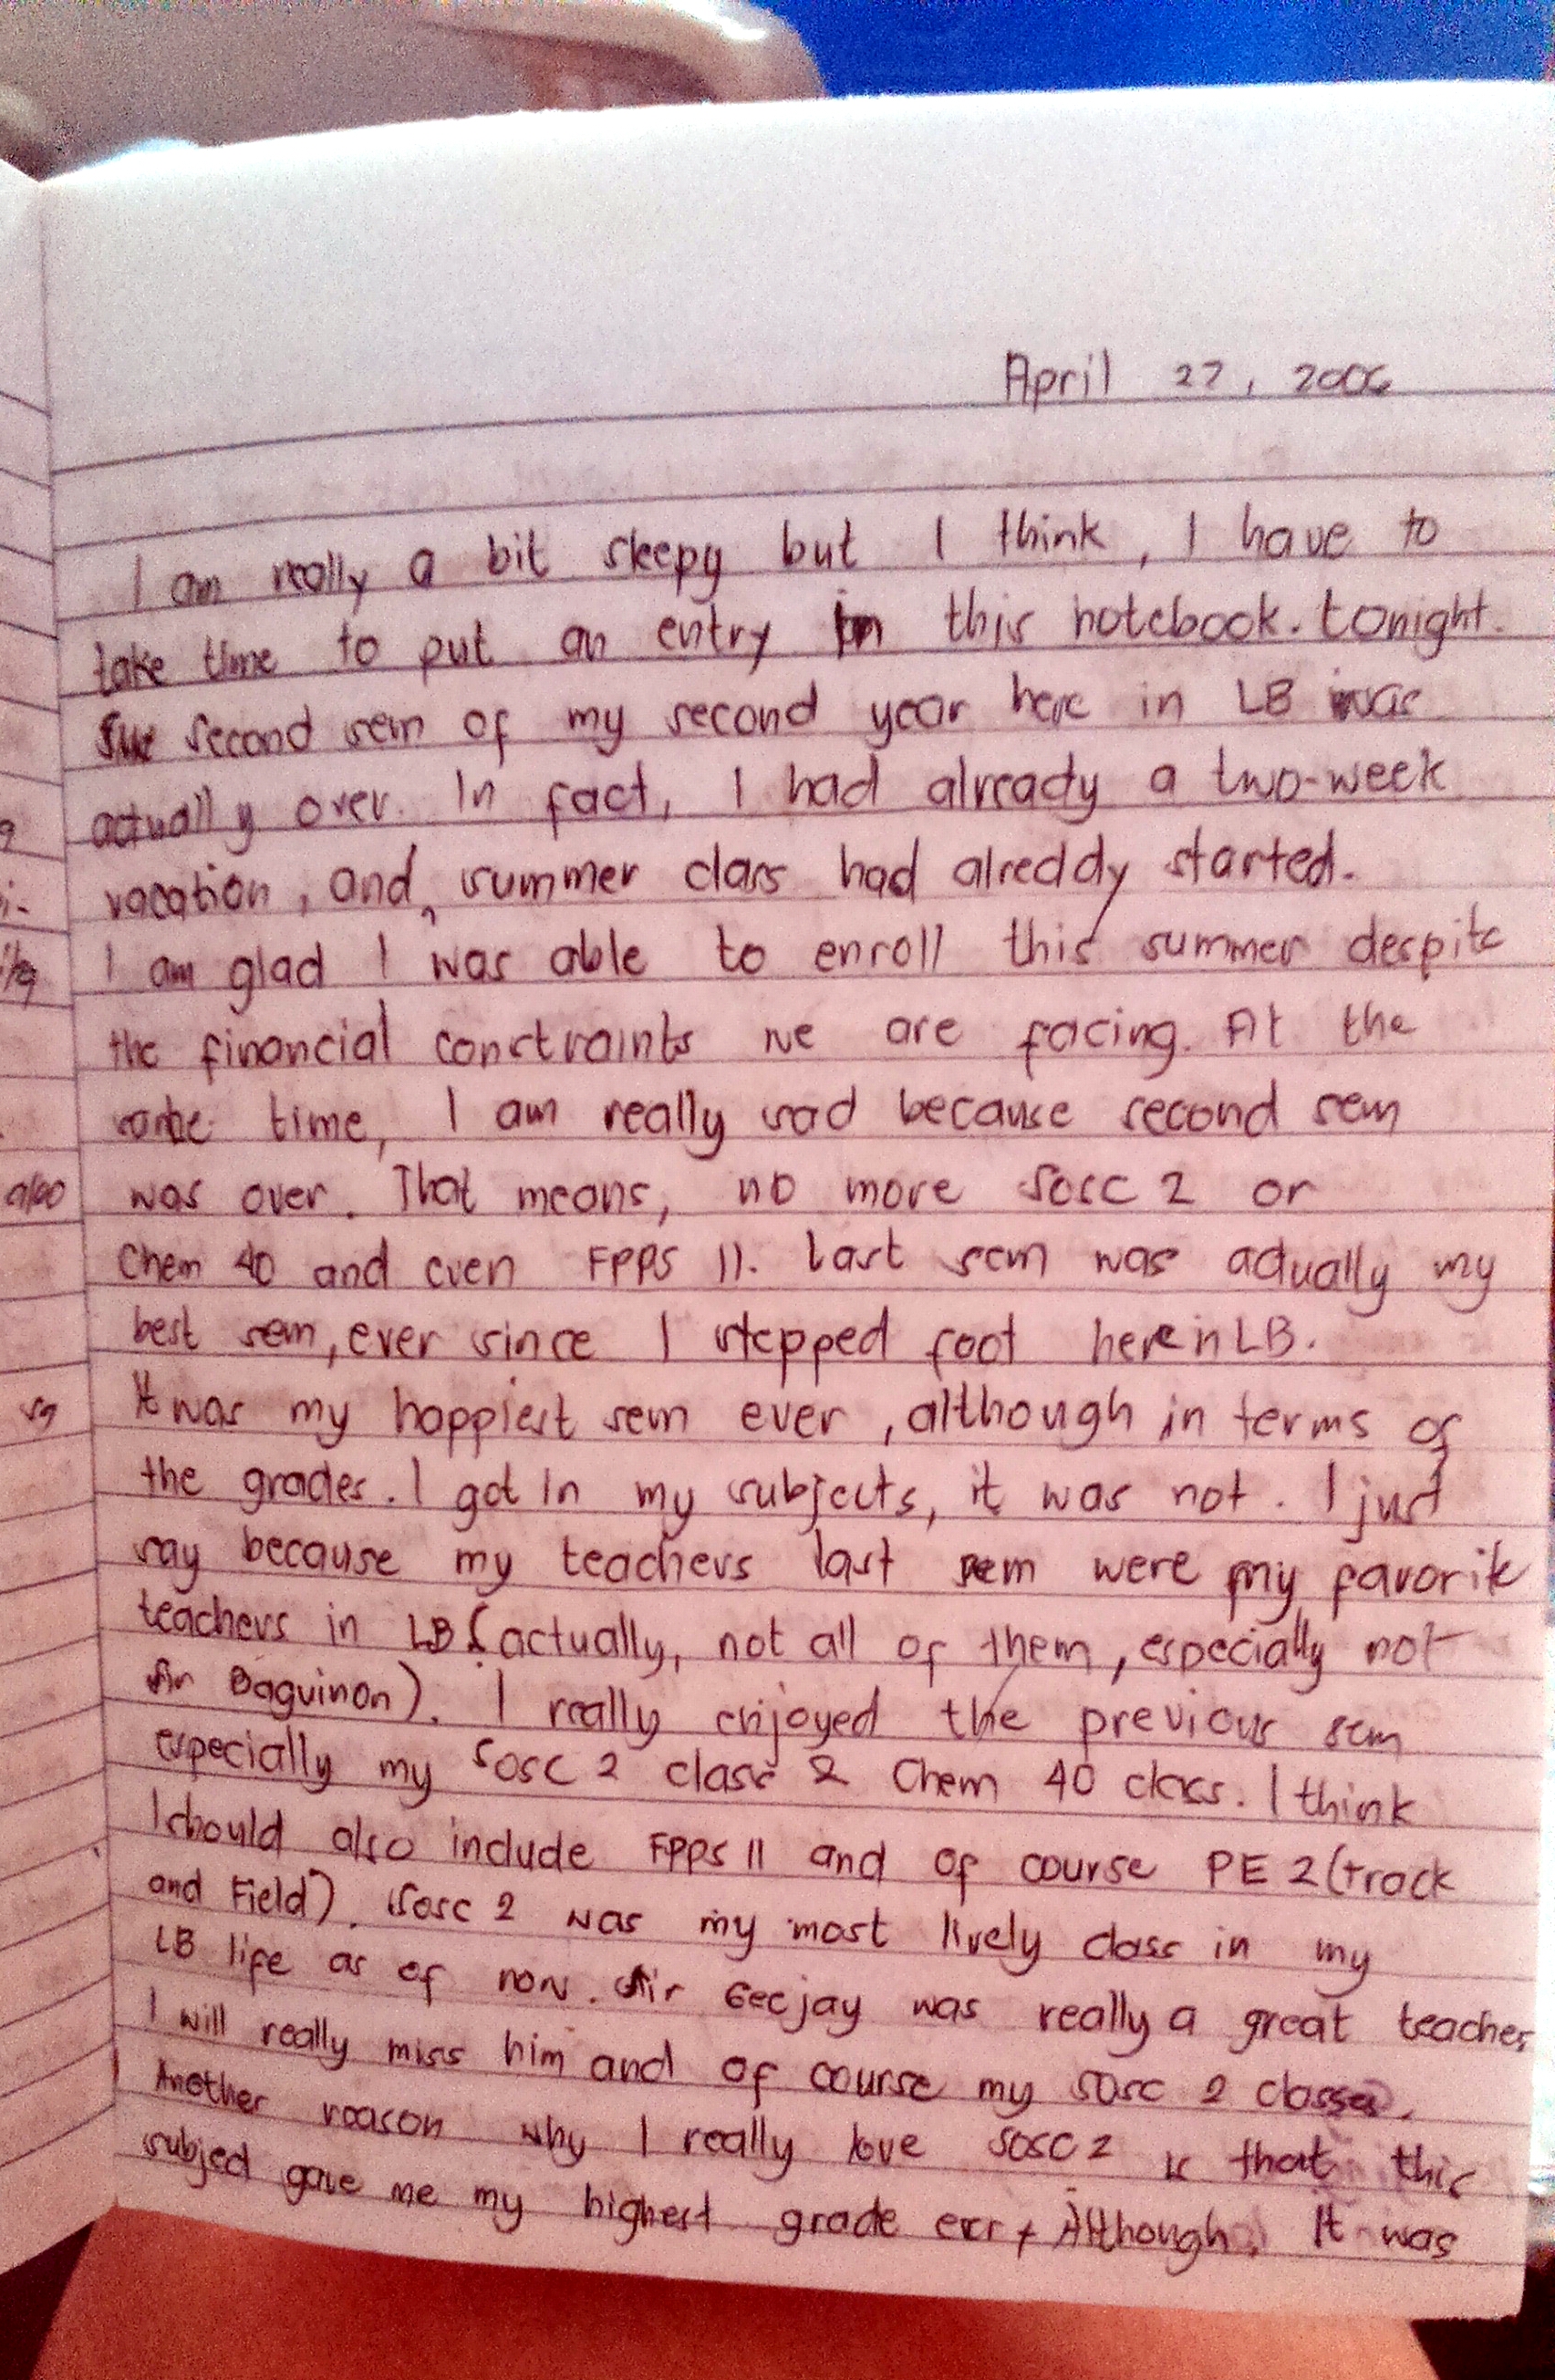 April 27, 2006
I am really a bit sleepy but I think, I have to
take time to put an entry in this notebook. tonight.
second sem of my second year here in LB was
actually over. In fact, I had already a two-week
vacation, and summer class had already started.
I am glad I was able to enroll this summer despite
the financial constraints we are facing. At the
same time, I am really sad because second sem
was over. That means, no more Sosc 2 or
Chem 40 and even FPPS 11. Last sem was actually my
best sem, ever since I stepped foot here in LB.
It was my happiest sem ever, although in terms of
the grades. I got in my subjects, it was not. I just
say because my teachers last sem were my favorite
teachers in LB (actually, not all of them, especially not
Sir Baguinon). I really enjoyed the previous sem
especially my Sosc 2 class & Chem 40 class. I think
I should also include FPPS 11 and of course PE 2 (track
and Field). Sosc 2 was my most lively class in my
LB life as of now. Sir Geejay was really a great teacher
I will really miss him and of course my Sosc 2 classes.
Another reason why I really love Sosc 2 is that this
subject gave me my highest grade ever. Although, It was
also